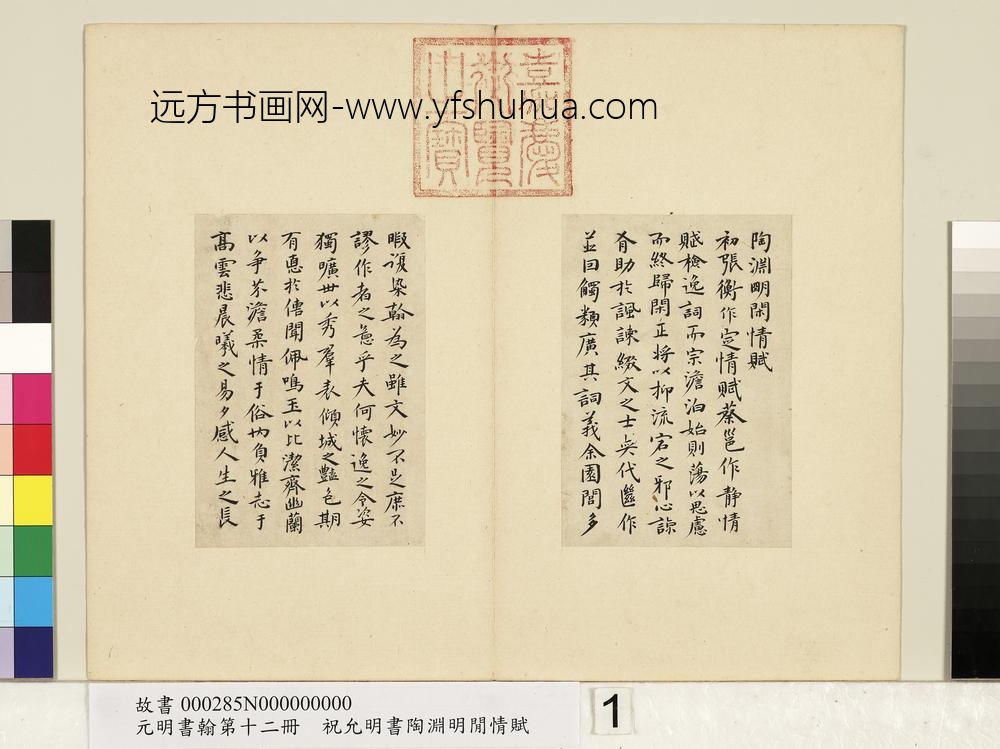 远方书画网-www.yfshuhua.com
嘉慶
御覽
之寶
陶淵明閑情賦
初張衡作定情賦蔡邕作靜情
賦檢逸詞而宗澹泊始則蕩以思慮
而終歸閑正將以抑流宕之邪心諒
有助於諷諫綴文之士奕代繼作
並因觸類廣其詞義余園閭多
暇復染翰為之雖文妙不足庶不
謬作者之意乎夫何懷逸之令姿
獨曠世以秀羣表傾城之豔色期
有悳於傳聞佩鳴玉以比潔齊幽蘭
以爭芬澹柔情于俗內負雅志于
高雲悲晨曦之易夕感人生之長
故書 000285N000000000
元明書翰第十二冊 祝允明書陶淵明閒情賦
1